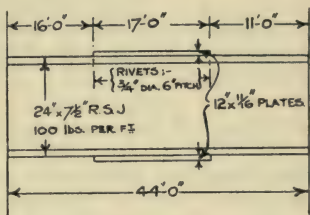 16'-0" 17'-0" 11'-0"
RIVETS:-
3/4" DIA. 6" PITCH
24" x 7 1/2" R.S.J
100 lbs. PER FT
12" x 11/16" PLATES.
44'-0"